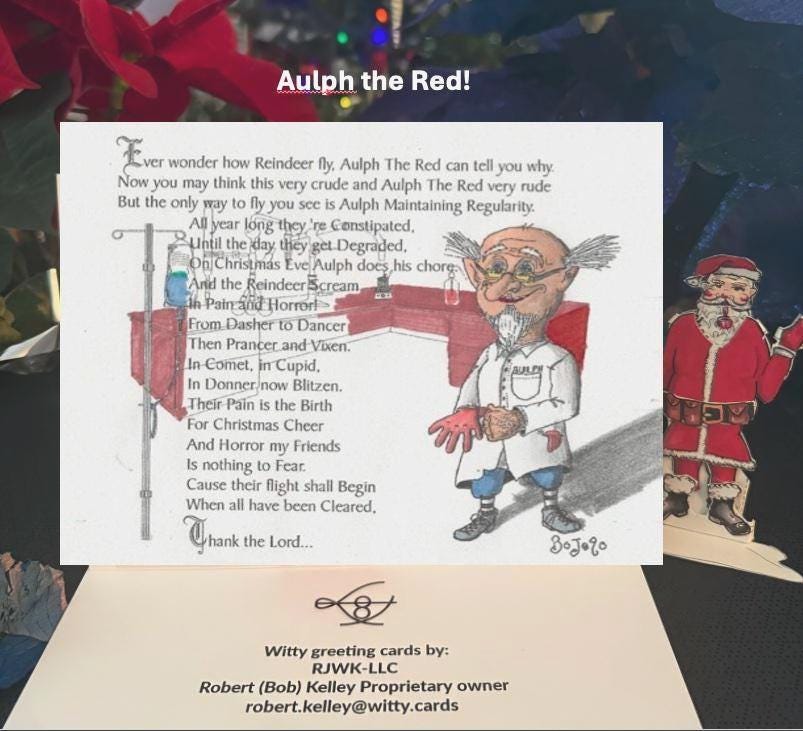 Aulph the Red!
Ever wonder how Reindeer fly, Aulph The Red can tell you why.
Now you may think this very crude and Aulph The Red very rude
But the only way to fly you see is Aulph Maintaining Regularity.
All year long they 're Constipated,
Until the day they get Degraded,
On Christmas Eve Aulph does his chore,
And the Reindeer Scream
In Pain and Horror!
From Dasher to Dancer
Then Prancer and Vixen.
In Comet, in Cupid,
In Donner now Blitzen.
Their Pain is the Birth
For Christmas Cheer
And Horror my Friends
Is nothing to Fear.
Cause their flight shall Begin
When all have been Cleared,
Thank the Lord...
AULPH
BoJo90
Witty greeting cards by:
RJWK-LLC
Robert (Bob) Kelley Proprietary owner
robert.kelley@witty.cards